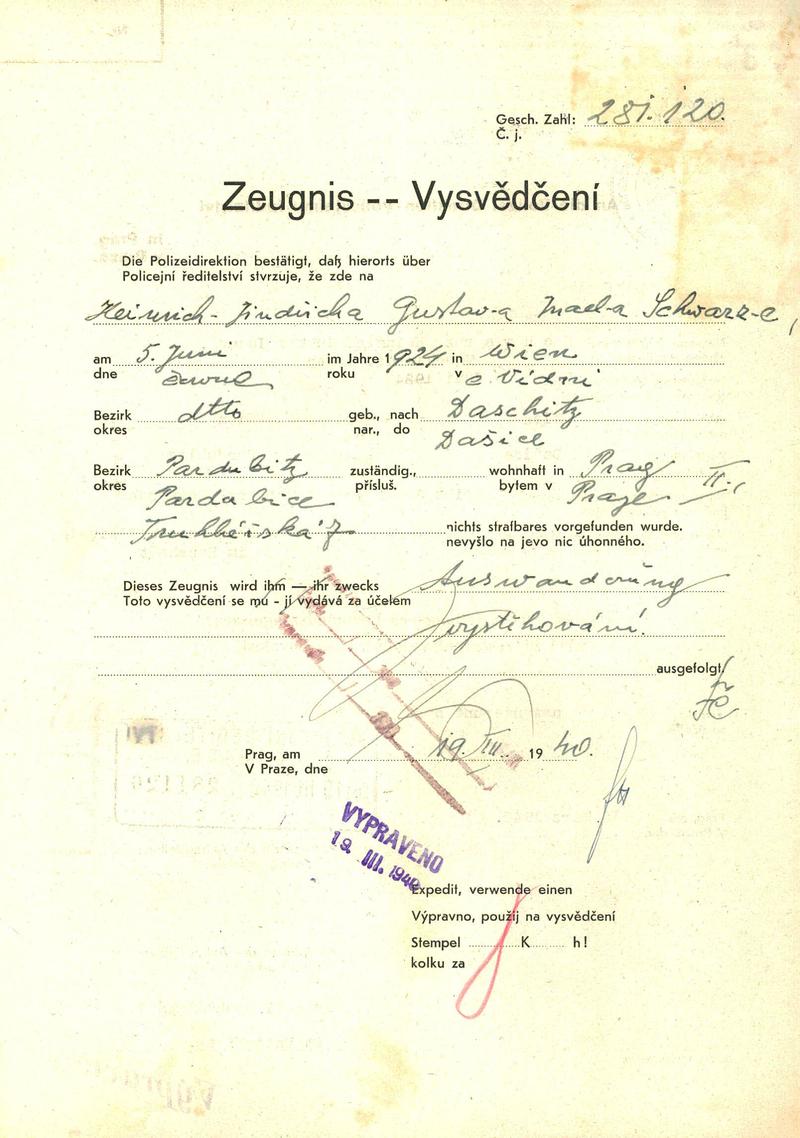 Gesch. Zahl: 281.120.
Č. j.
Zeugnis -- Vysvědčení
Die Polizeidirektion bestätigt, daß hierorts über
Policejní ředitelství stvrzuje, že zde na
Heinrich-Jindřicha Gustav-a Israel-a Schwarz-e,
am 5. Juni im Jahre 1924 in Wien
dne června roku v e Vídni
Bezirk dtto geb., nach Daschitz
okres nar., do Dašice
Bezirk Pardubitz zuständig., wohnhaft in Prag II.,
okres Pardubice přísluš. bytem v Praze
nichts strafbares vorgefunden wurde.
nevyšlo na jevo nic úhonného.
Dieses Zeugnis wird ihm — ihr zwecks Auswanderung
Toto vysvědčení se mu - jí vydává za účelem
vystěhování.
ausgefolgt.
Prag, am 19. III. 1940.
V Praze, dne
VYPRAVENO
19. III. 1940
Expedit, verwende einen
Výpravno, použij na vysvědčení
Stempel K h!
kolku za